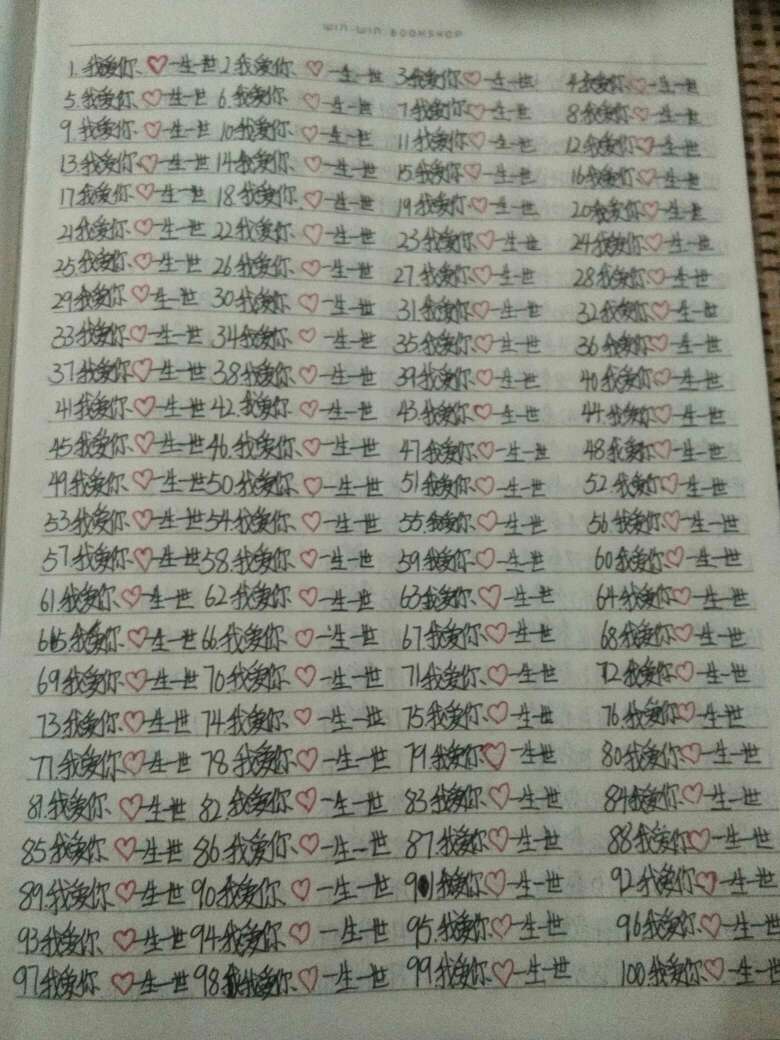 WIN-WIN BOOKSHOP
1.我爱你♡一生一世 2.我爱你♡一生一世 3.我爱你♡一生一世 4.我爱你♡一生一世
5.我爱你♡一生一世 6.我爱你♡一生一世 7.我爱你♡一生一世 8.我爱你♡一生一世
9.我爱你♡一生一世 10.我爱你♡一生一世 11.我爱你♡一生一世 12.我爱你♡一生一世
13.我爱你♡一生一世 14.我爱你♡一生一世 15.我爱你♡一生一世 16.我爱你♡一生一世
17.我爱你♡一生一世 18.我爱你♡一生一世 19.我爱你♡一生一世 20.我爱你♡一生一世
21.我爱你♡一生一世 22.我爱你♡一生一世 23.我爱你♡一生一世 24.我爱你♡一生一世
25.我爱你♡一生一世 26.我爱你♡一生一世 27.我爱你♡一生一世 28.我爱你♡一生一世
29.我爱你♡一生一世 30.我爱你♡一生一世 31.我爱你♡一生一世 32.我爱你♡一生一世
33.我爱你♡一生一世 34.我爱你♡一生一世 35.我爱你♡一生一世 36.我爱你♡一生一世
37.我爱你♡一生一世 38.我爱你♡一生一世 39.我爱你♡一生一世 40.我爱你♡一生一世
41.我爱你♡一生一世 42.我爱你♡一生一世 43.我爱你♡一生一世 44.我爱你♡一生一世
45.我爱你♡一生一世 46.我爱你♡一生一世 47.我爱你♡一生一世 48.我爱你♡一生一世
49.我爱你♡一生一世 50.我爱你♡一生一世 51.我爱你♡一生一世 52.我爱你♡一生一世
53.我爱你♡一生一世 54.我爱你♡一生一世 55.我爱你♡一生一世 56.我爱你♡一生一世
57.我爱你♡一生一世 58.我爱你♡一生一世 59.我爱你♡一生一世 60.我爱你♡一生一世
61.我爱你♡一生一世 62.我爱你♡一生一世 63.我爱你♡一生一世 64.我爱你♡一生一世
65.我爱你♡一生一世 66.我爱你♡一生一世 67.我爱你♡一生一世 68.我爱你♡一生一世
69.我爱你♡一生一世 70.我爱你♡一生一世 71.我爱你♡一生一世 72.我爱你♡一生一世
73.我爱你♡一生一世 74.我爱你♡一生一世 75.我爱你♡一生一世 76.我爱你♡一生一世
77.我爱你♡一生一世 78.我爱你♡一生一世 79.我爱你♡一生一世 80.我爱你♡一生一世
81.我爱你♡一生一世 82.我爱你♡一生一世 83.我爱你♡一生一世 84.我爱你♡一生一世
85.我爱你♡一生一世 86.我爱你♡一生一世 87.我爱你♡一生一世 88.我爱你♡一生一世
89.我爱你♡一生一世 90.我爱你♡一生一世 91.我爱你♡一生一世 92.我爱你♡一生一世
93.我爱你♡一生一世 94.我爱你♡一生一世 95.我爱你♡一生一世 96.我爱你♡一生一世
97.我爱你♡一生一世 98.我爱你♡一生一世 99.我爱你♡一生一世 100.我爱你♡一生一世